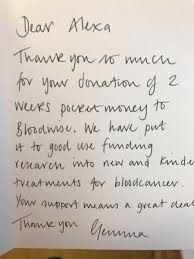 Dear Alexa
Thank you so much
for your donation of 2
weeks pocket money to
Bloodwise. We have put
it to good use funding
research into new and kinder
treatments for bloodcancer.
Your support means a great deal
Thank you Gemma